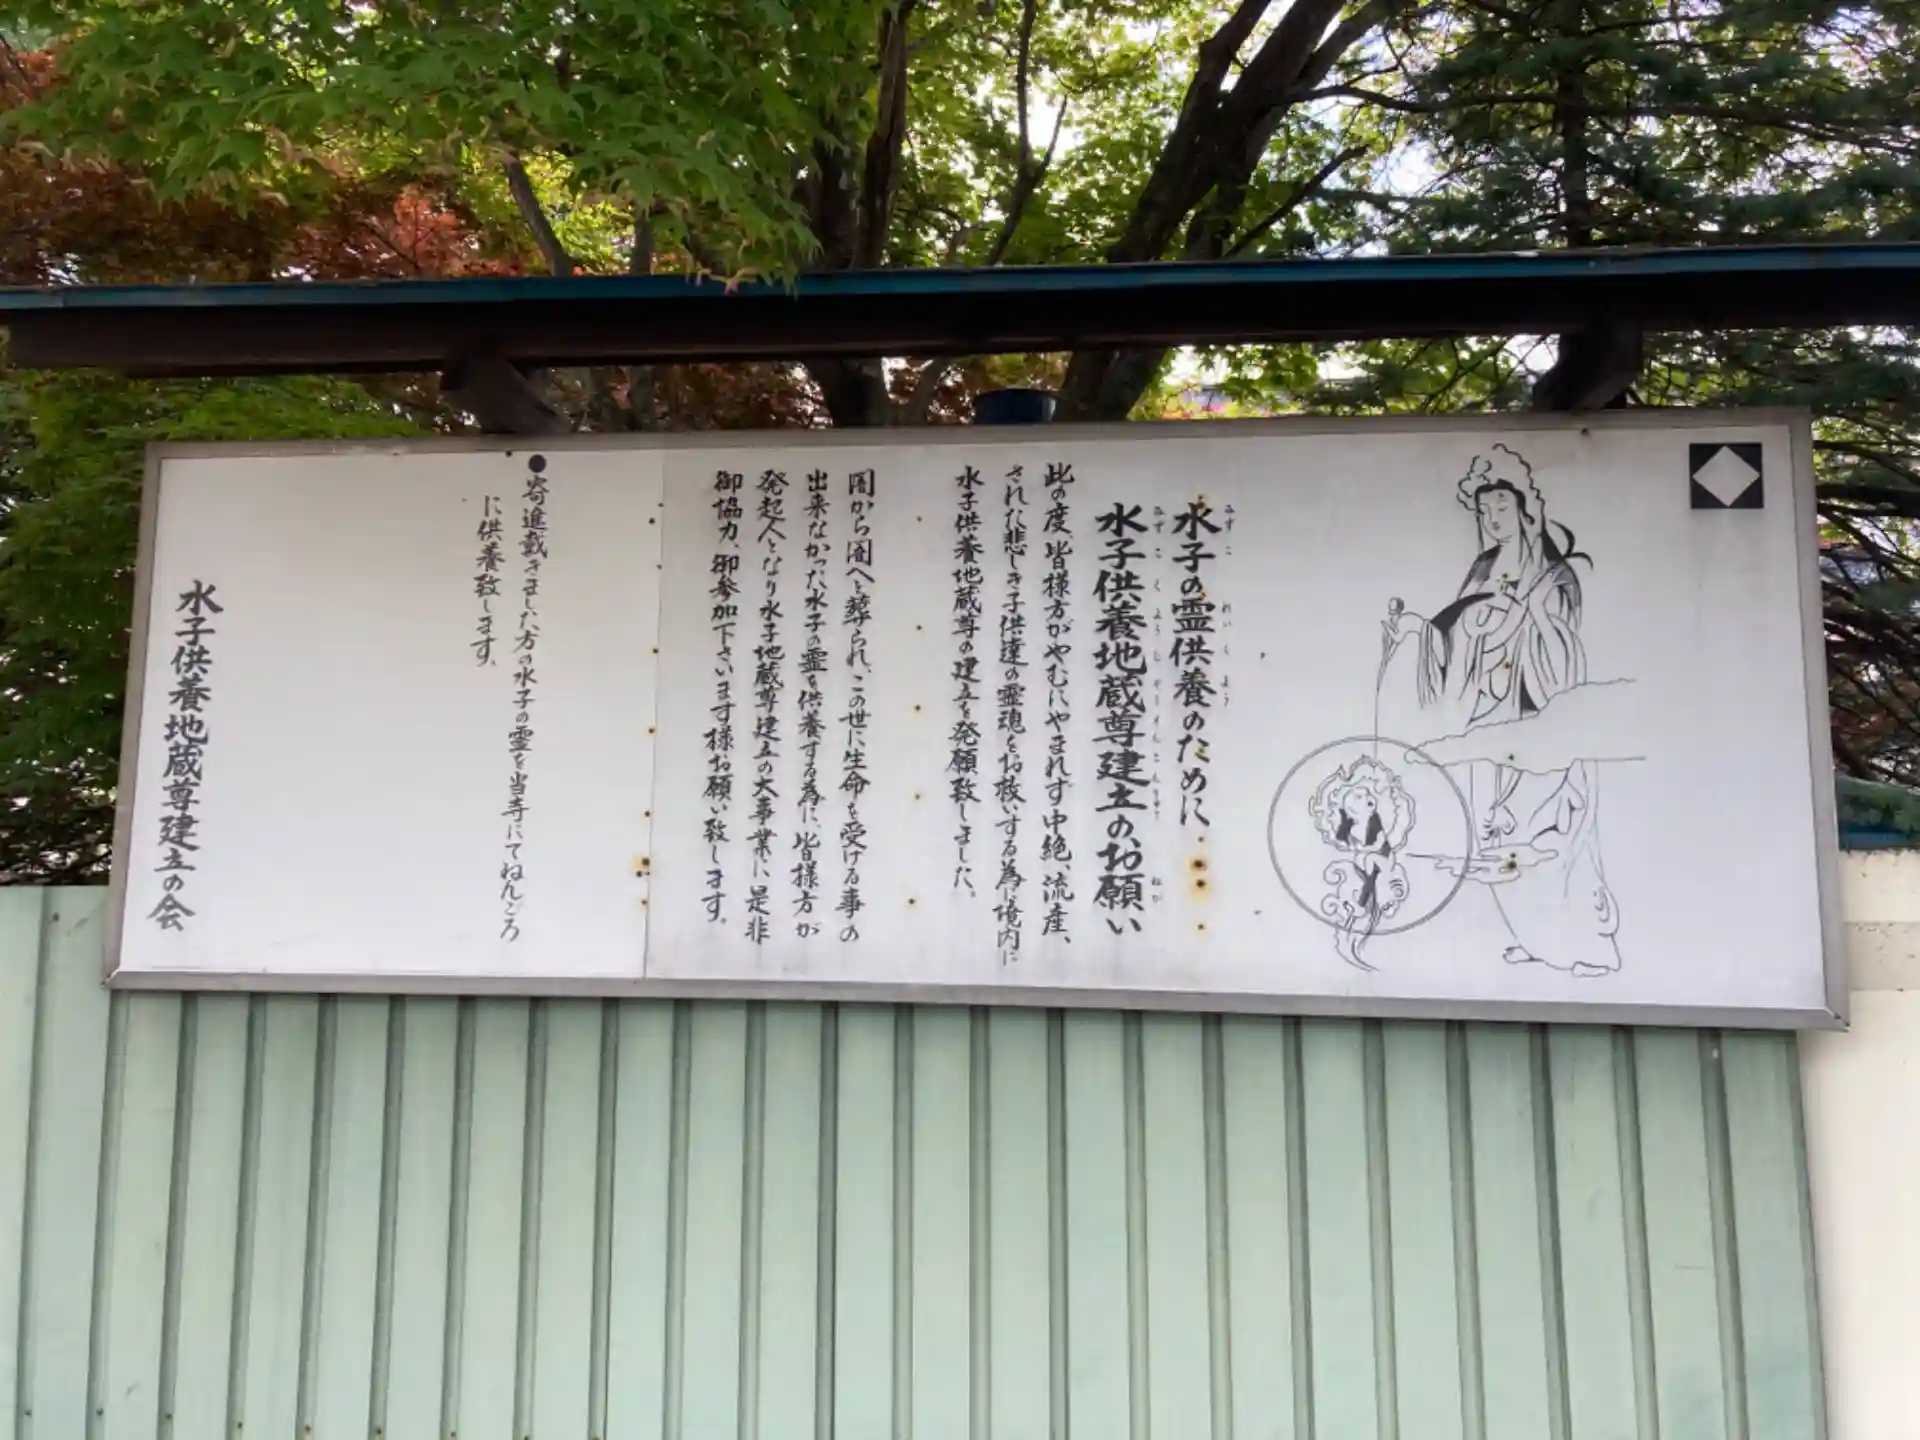 水子の霊供養のために
みずこ れい くよう
水子供養地蔵尊建立のお願い
みずこ くようじぞうそんこんりゅう ねが
此の度、皆様方がやむにやまれず中絶、流産、
された悲しき子供達の霊魂をお救いする為に境内に
水子供養地蔵尊の建立を発願致しました。
闇から闇へと葬られ、この世に生命を受ける事の
出来なかった水子の霊を供養する為に、皆様方が
発起人となり水子地蔵尊建立の大事業に是非
御協力、御参加下さいます様お願い致します。
●寄進戴きました方の水子の霊を当寺にてねんごろ
に供養致します。
水子供養地蔵尊建立の会